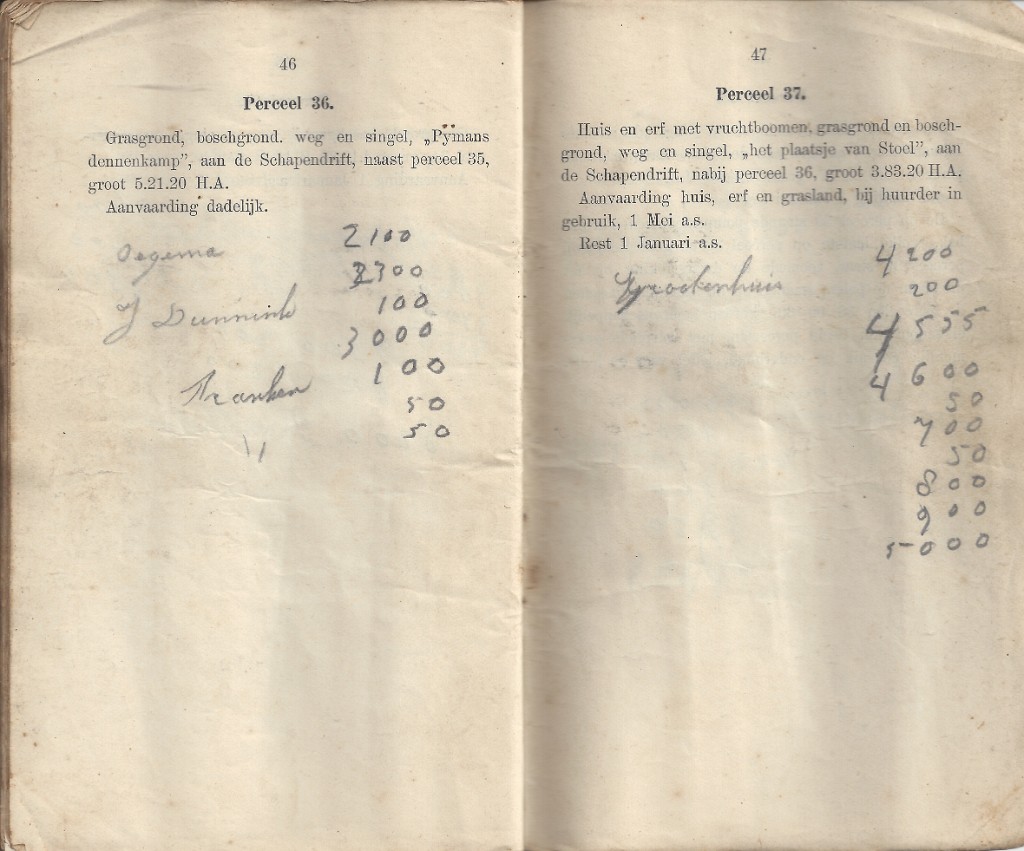 46
Perceel 36.
Grasgrond, boschgrond. weg en singel, „Pÿmans
dennenkamp”, aan de Schapendrift, naast perceel 35,
groot 5.21.20 H.A.
Aanvaarding dadelijk.
2100
Oegema
2300
100
J Dunnink
3000
100
50
50
47
Perceel 37.
Huis en erf met vruchtboomen, grasgrond en bosch-
grond, weg en singel, „het plaatsje van Stoel”, aan
de Schapendrift, nabij perceel 36, groot 3.83.20 H.A.
Aanvaarding huis, erf en grasland, bij huurder in
gebruik, 1 Mei a.s.
Rest 1 Januari a.s.
4200
200
4555
4600
50
700
50
800
900
5000